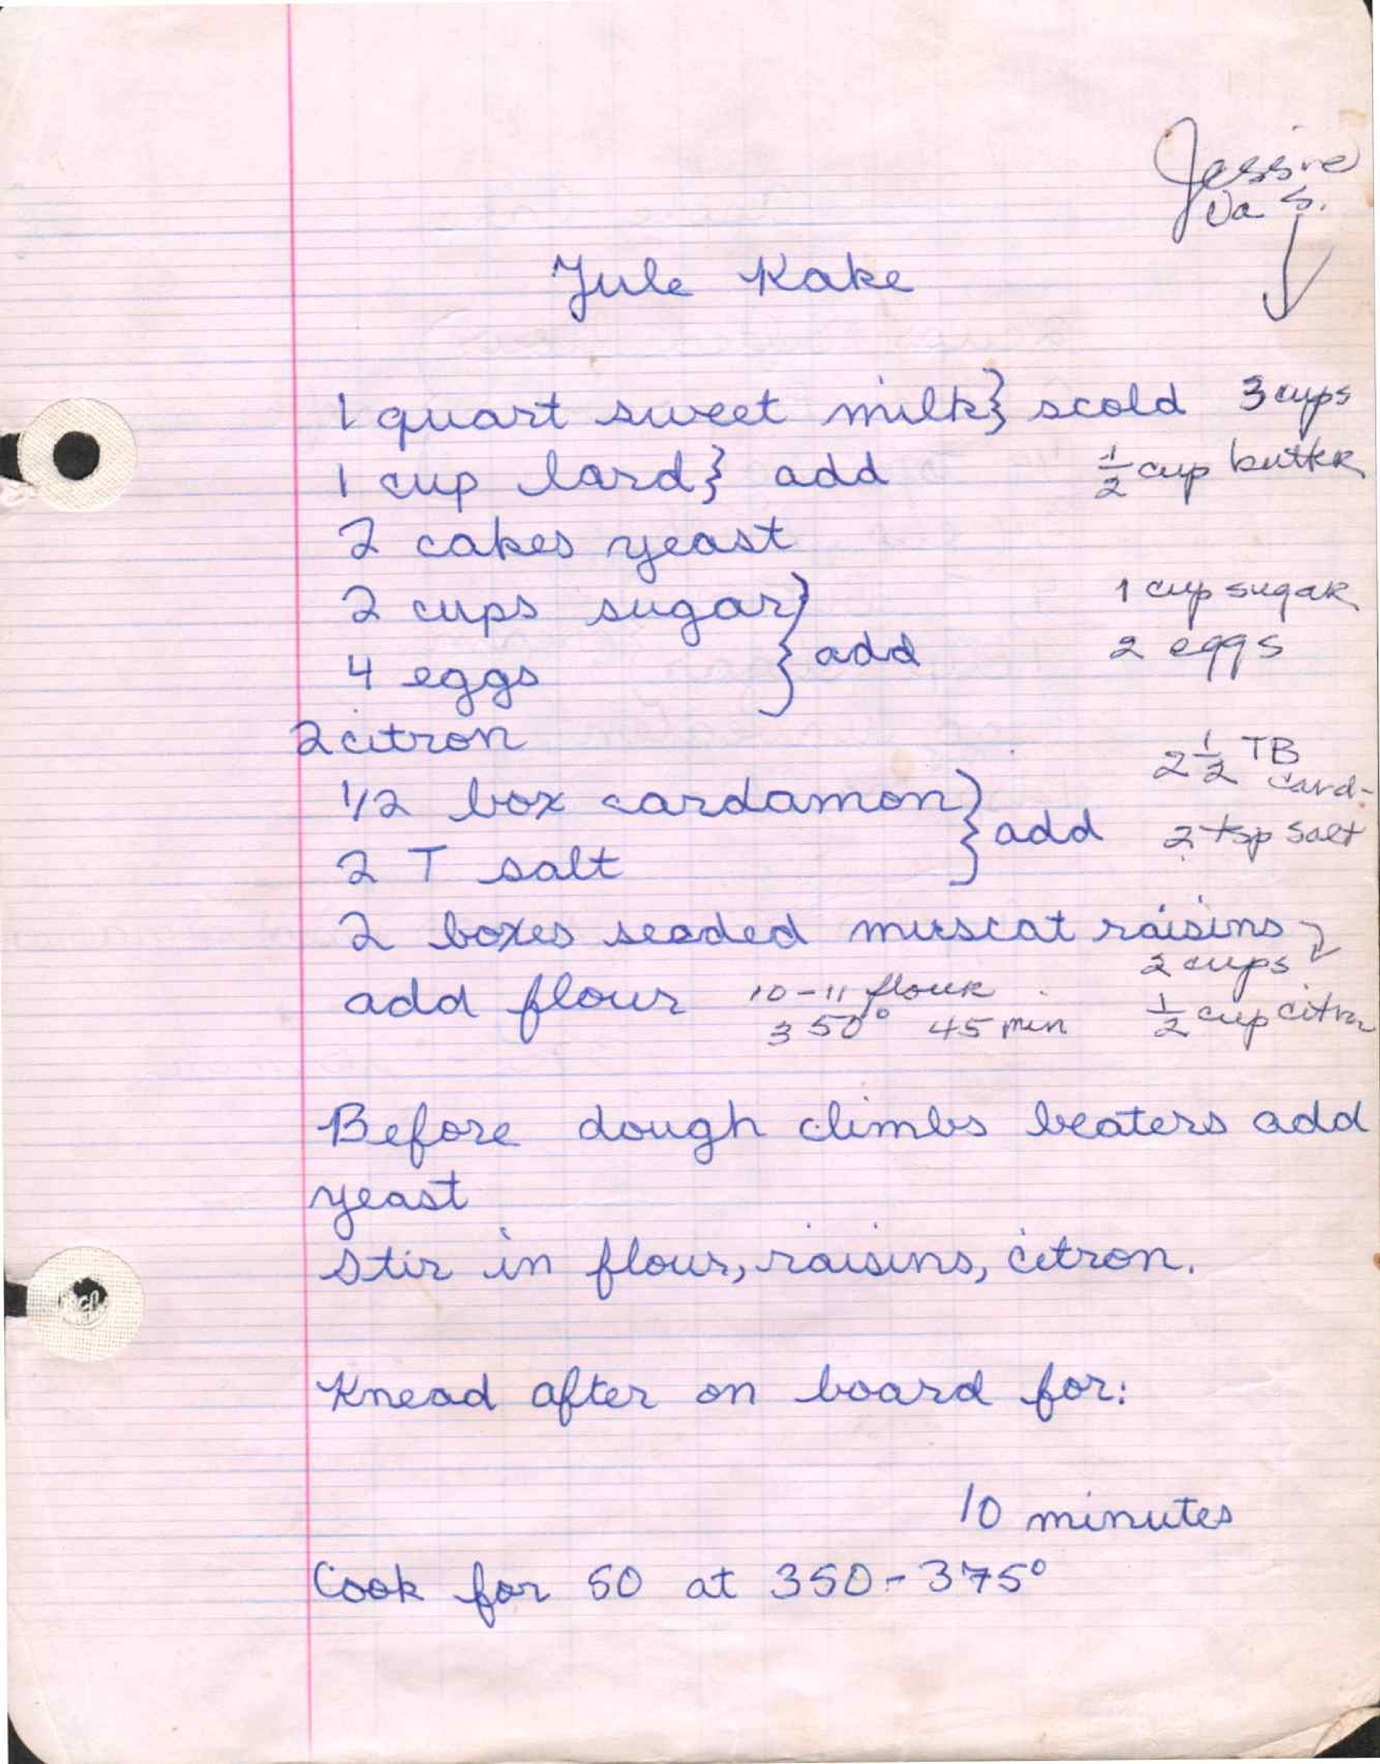 Jessie
Da S.
Jule Kake
1 quart sweet milk} scold 3 cups
1 cup lard} add ½ cup butter
2 cakes yeast
2 cups sugar 1 cup sugar
4 eggs } add 2 eggs
2 citron
2½ TB
card-
1/2 box cardamon
} add 2 tsp salt
2 T salt
2 boxes seaded muscat raisins
2 cups
add flour 10-11 flour ½ cup citron
350° 45 min
Before dough climbs beaters add
yeast
Stir in flour, raisins, citron.
Knead after on board for:
10 minutes
Cook for 50 at 350-375°